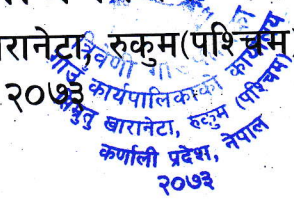 रानेटा, रुकुम(पश्चिम)
२०७३
त्रिवेणी गाउँ
गाउँ कार्यपालिकाको कार्यालय
खारानेटा, रुकुम (पश्चिम)
कर्णाली प्रदेश, नेपाल
२०७३